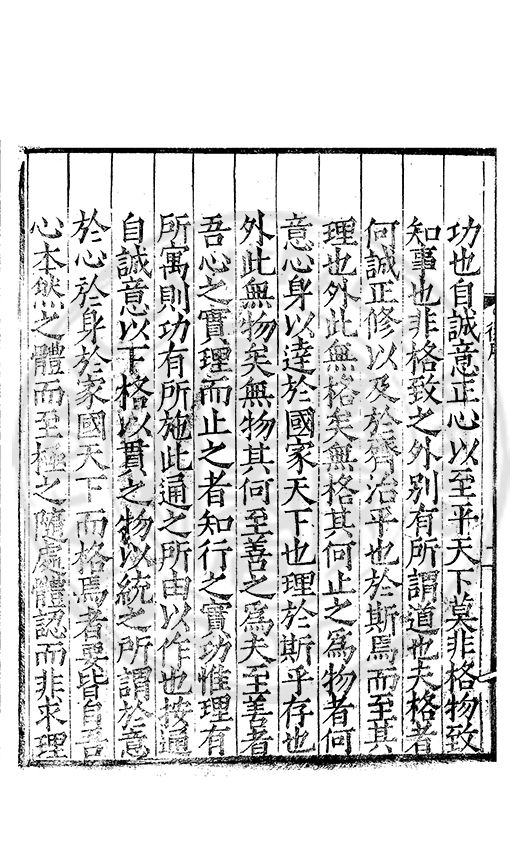 功也自誠意正心以至平天下莫非格物致
知事也非格致之外別有所謂道也夫格者
何誠正修以及於齊治平也於斯焉而至其
理也外此無格矣無格其何止之為物者何
意心身以達於國家天下也理於斯乎存也
外此無物矣無物其何至善之為夫至善者
吾心之實理而止之者知行之實功惟理有
所寓則功有所施此通之所由以作也按通
自誠意以下格以貫之物以統之所謂於意
於心於身於家國天下而格焉者要皆自吾
心本然之體而至極之隨處體認而非求理